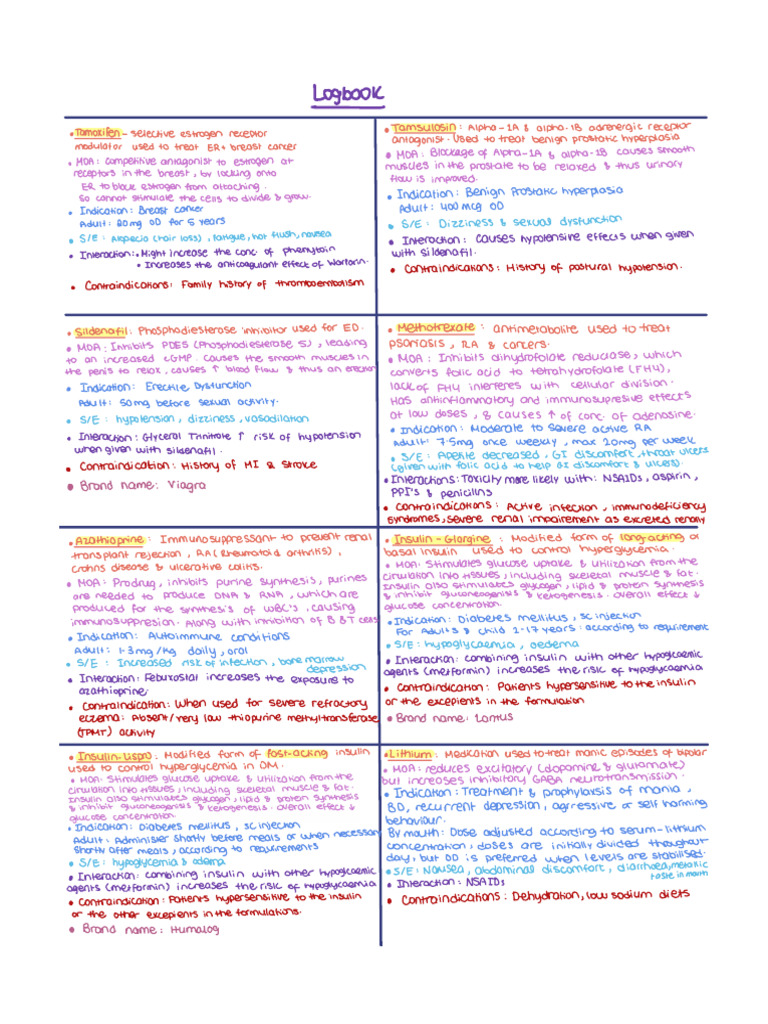 Logbook
• Tamoxifen - selective estrogen receptor
modulator used to treat ER+ breast cancer
• MOA: competitive antagonist to estrogen at
receptors in the breast, by locking onto
ER to block estrogen from attaching.
So cannot stimulate the cells to divide & grow.
• Indication: Breast cancer
Adult: 20mg OD for 5 years
• S/E: Alopecia (hair loss), fatigue, hot flush, nausea
• Interaction: • Might increase the conc. of phenytoin
• Increases the anticoagulant effect of Warfarin.
• Contraindications: Family history of thromboembolism
• Tamsulosin: Alpha-1A & alpha-1B adrenergic receptor
antagonist. Used to treat benign prostatic hyperplasia
• MOA: Blockage of Alpha-1A & alpha-1B causes smooth
muscles in the prostate to be relaxed & thus urinary
flow is improved.
• Indication: Benign Prostatic hyperplasia
Adult: 400mcg OD
• S/E: Dizziness & sexual dysfunction
• Interaction: Causes hypotensive effects when given
with sildenafil.
• Contraindications: History of postural hypotension.
• Sildenafil: Phosphodiesterase inhibitor used for ED.
• MOA: Inhibits PDE5 (Phosphodiesterase 5), leading
to an increased cGMP. Causes the smooth muscles in
the penis to relax, causes ↑ blood flow & thus an erection
• Indication: Erectile Dysfunction
Adult: 50mg before sexual activity.
• S/E: hypotension, dizziness, vasodilation
• Interaction: Glyceral Trinitrate ↑ risk of hypotension
when given with sildenafil.
• Contraindication: History of MI & Stroke
• Brand name: Viagra
• Methotrexate: antimetabolite used to treat
psoriasis, RA & cancers.
• MOA: Inhibits dihydrofolate reductase, which
converts folic acid to tetrahydrofolate (FH4),
lack of FH4 interferes with cellular division.
Has antiinflammatory and immunosupresive effects
at low doses, & causes ↑ of conc. of adenosine.
• Indication: Moderate to severe active RA
Adult: 7.5mg once weekly, max 20mg per week
• S/E: Apetite decreased, GI discomfort, throat ulcers
(given with folic acid to help GI discomfort & ulcers).
• Interactions: Toxicity more likely with: NSAIDs, aspirin,
PPI's & penicilins
• Contraindications: Active infection, immunodeficiency
syndromes, severe renal impairement as excreted renally
• Azathioprine: Immunosuppressant to prevent renal
transplant rejection, RA (Rheumatoid arthritis),
crohns disease & ulcerative colitis.
• MOA: Prodrug, inhibits purine synthesis, purines
are needed to produce DNA & RNA, which are
produced for the synthesis of WBC's, causing
immunosuppresion. Along with inhibition of B & T cells
• Indication: Autoimmune conditions
Adult: 1-3mg/kg daily, oral
• S/E: Increased risk of infection, bone marrow
depression
• Interaction: Febuxostat increases the exposure to
azathioprine.
• Contraindication: When used for severe refractory
eczema: Absent/very low thiopurine methyltransferase
(TPMT) activity
• Insulin-Glargine: Modified form of long-acting or
basal insulin used to control hyperglycemia.
• MOA: Stimulates glucose uptake & utilization from the
circulation into tissues, including skeletal muscle & fat.
Insulin also stimulates glycogen, lipid & protein synthesis
& inhibit gluconeogenesis & ketogenesis. overall effect ↓
glucose concentration.
• Indication: Diabetes mellitus, sc injection
For Adults & child 2-17 years: according to requirement
• S/E: hypoglycaemia, oedema
• Interaction: combining insulin with other hypoglycaemic
agents (metformin) increases the risk of hypoglycaemia
• Contraindication: Patients hypersensitive to the insulin
or the excepients in the formulation
• Brand name: Lantus
• Insulin-Lispro: Modified form of fast-acting insulin
used to control hyperglycemia in DM.
• MOA: Stimulates glucose uptake & utilization from the
circulation into tissues, including skeletal muscle & fat.
Insulin also stimulates glycogen, lipid & protein synthesis
& inhibit gluconeogenesis & ketogenesis. overall effect ↓
glucose concentration.
• Indication: Diabetes mellitus, sc injection
Adult: Administer shortly before meals or when necessary
shortly after meals, according to requirements
• S/E: hypoglycemia & edema
• Interaction: combining insulin with other hypoglycaemic
agents (metformin) increases the risk of hypoglycaemia
• Contraindication: Patients hypersensitive to the insulin
or the other excepients in the formulations.
• Brand name: Humalog
• Lithium: Medication used to treat manic episodes of bipolar
• MOA: reduces excitatory (dopamine & glutamate)
but increases inhibitory GABA neurotransmission.
• Indication: Treatment & prophylaxis of mania,
BD, recurrent depression, agressive or self harming
behaviour.
By mouth: Dose adjusted according to serum-lithium
concentration, doses are initially divided throughout
day, but OD is preferred when levels are stabilised.
• S/E: Nausea, abdominal discomfort, diarrhoea, metallic
taste in mouth
• Interaction: NSAIDs
• Contraindications: Dehydration, low sodium diets